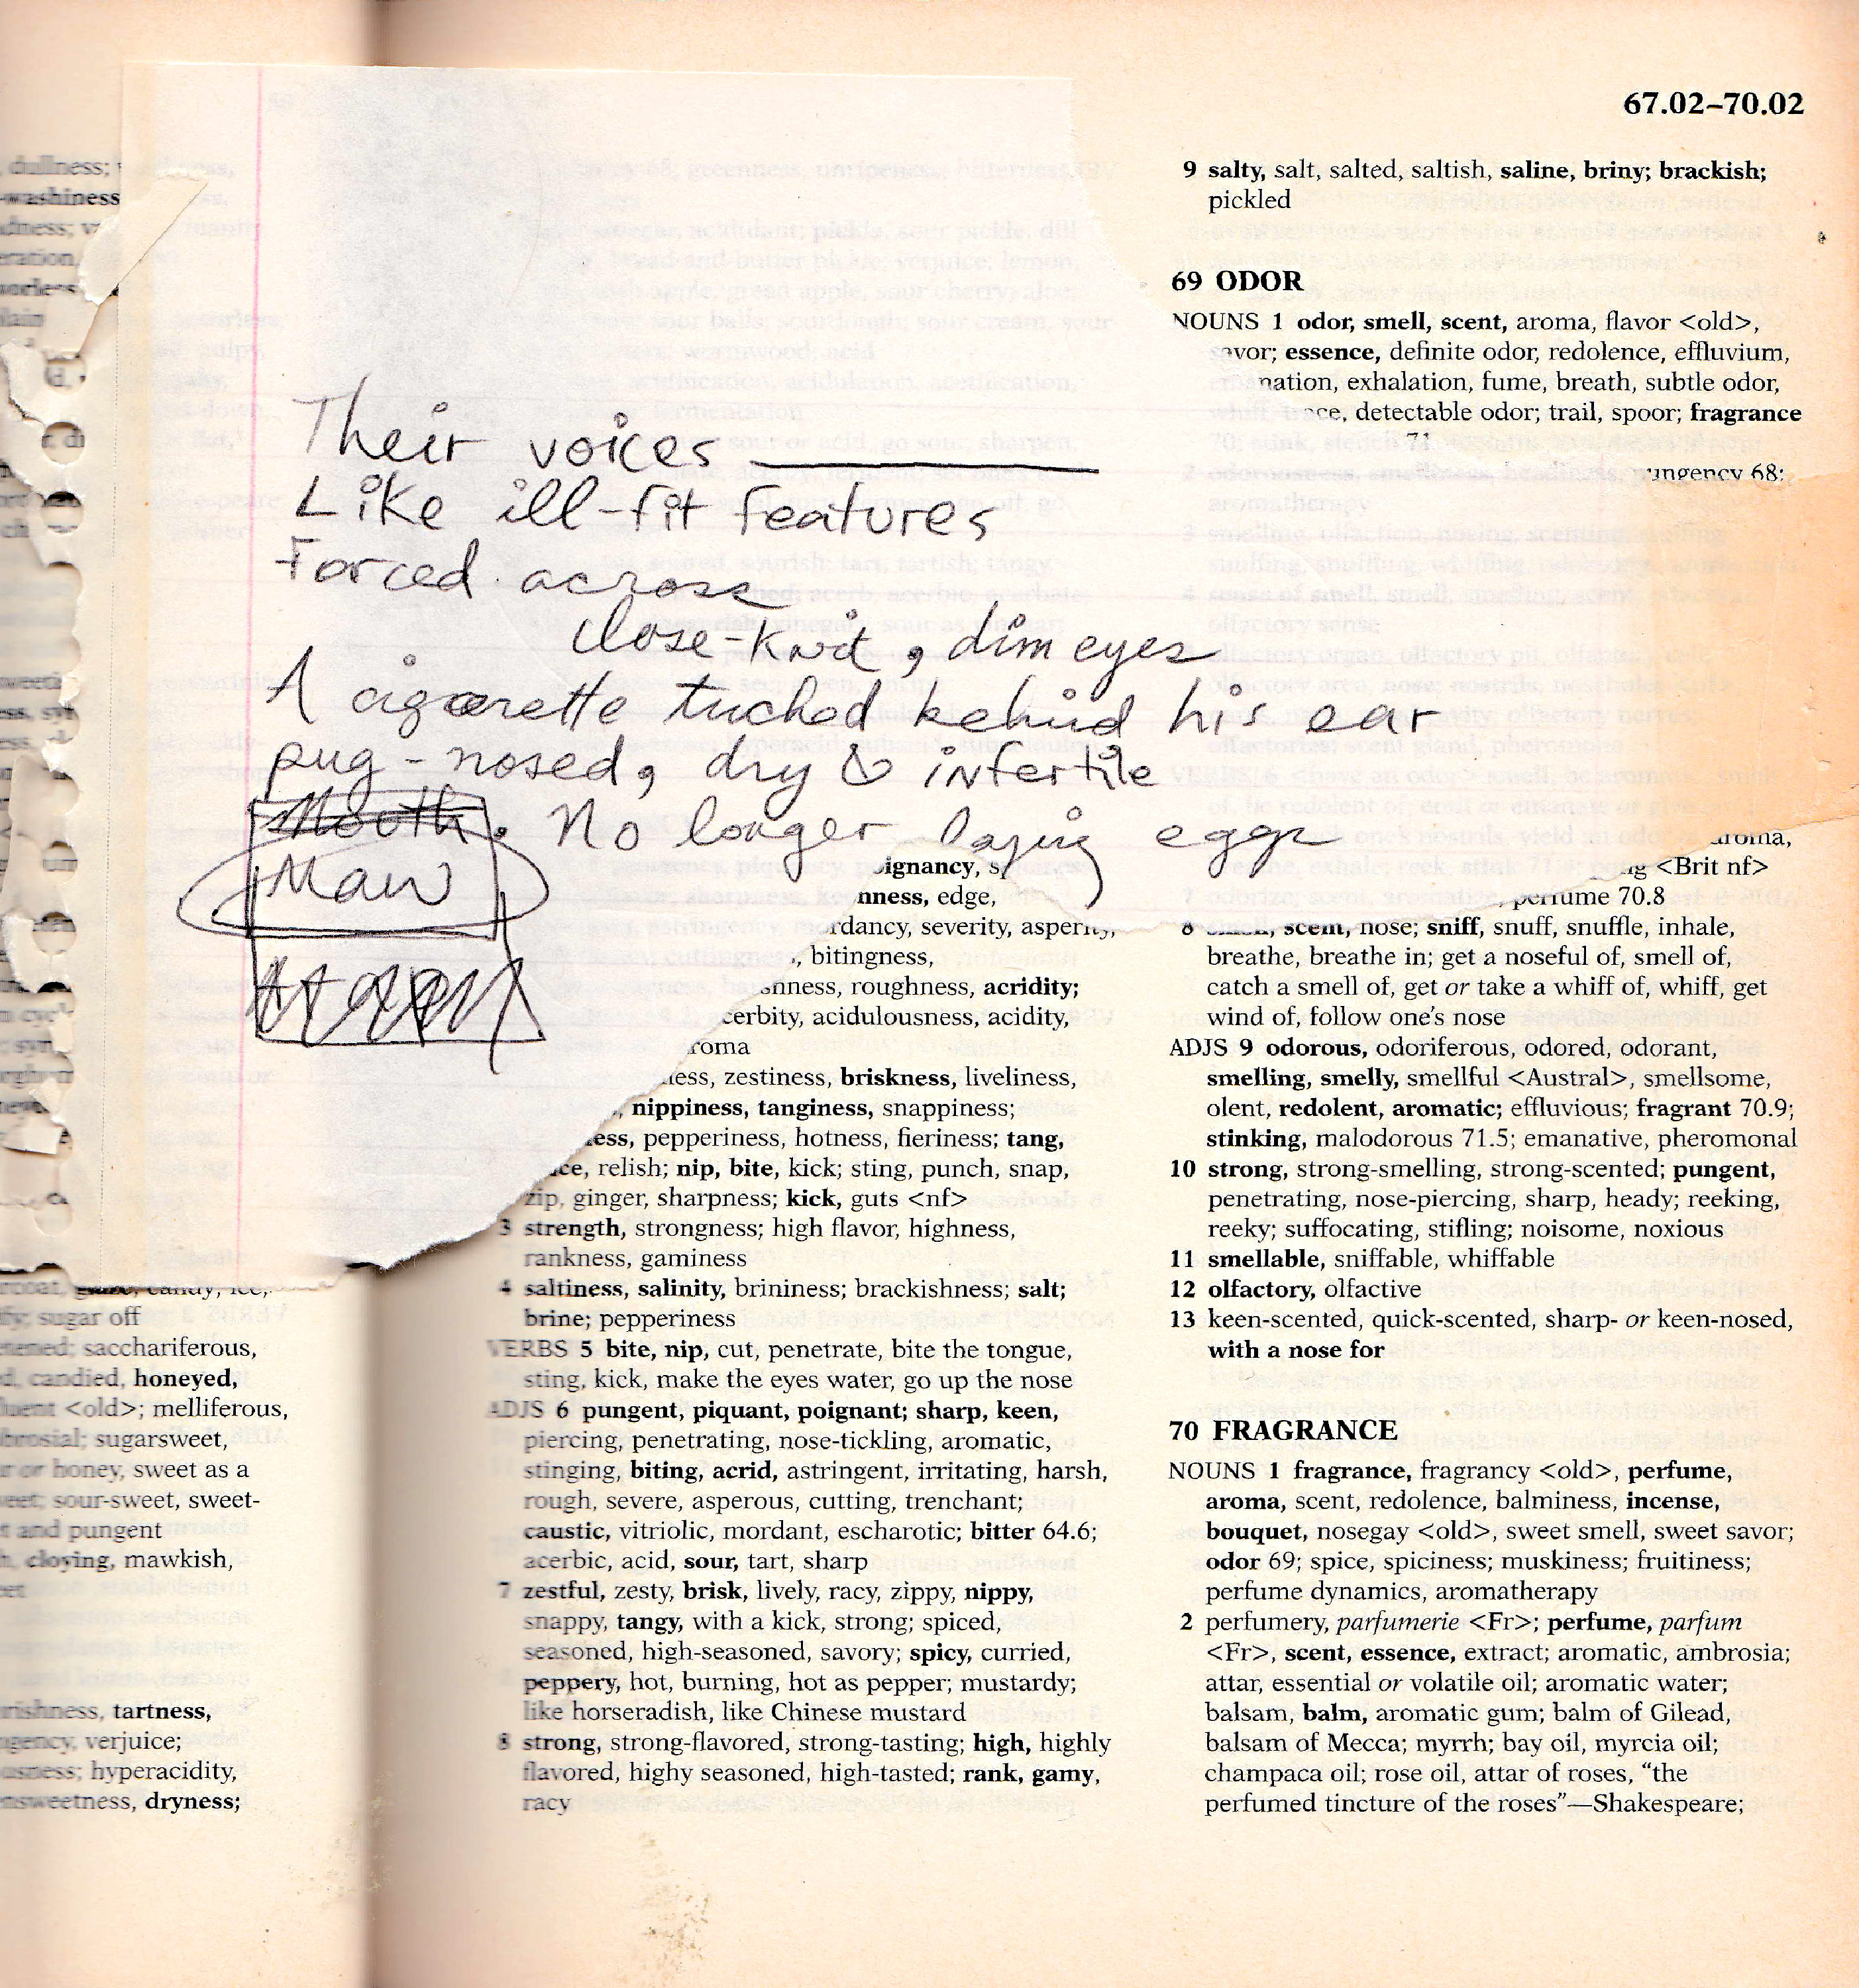 Their voices ________
Like ill-fit features
Forced across
close-knit, dim eyes
A cigarette tucked behind his ear
pug-nosed, dry & infertile
Mouth. No longer laying eggs
Maw
67.02–70.02
9 salty, salt, salted, saltish, saline, briny; brackish;
pickled
69 ODOR
NOUNS 1 odor, smell, scent, aroma, flavor <old>,
essence, definite odor, redolence, effluvium,
exhalation, fume, breath, subtle odor,
detectable odor; trail, spoor; fragrance
71
68;
<Brit nf>
perfume 70.8
8 scent, nose; sniff, snuff, snuffle, inhale,
breathe, breathe in; get a noseful of, smell of,
catch a smell of, get or take a whiff of, whiff, get
wind of, follow one's nose
ADJS 9 odorous, odoriferous, odored, odorant,
smelling, smelly, smellful <Austral>, smellsome,
olent, redolent, aromatic; effluvious; fragrant 70.9;
stinking, malodorous 71.5; emanative, pheromonal
10 strong, strong-smelling, strong-scented; pungent,
penetrating, nose-piercing, sharp, heady; reeking,
reeky; suffocating, stifling; noisome, noxious
11 smellable, sniffable, whiffable
12 olfactory, olfactive
13 keen-scented, quick-scented, sharp- or keen-nosed,
with a nose for
70 FRAGRANCE
NOUNS 1 fragrance, fragrancy <old>, perfume,
aroma, scent, redolence, balminess, incense,
bouquet, nosegay <old>, sweet smell, sweet savor;
odor 69; spice, spiciness; muskiness; fruitiness;
perfume dynamics, aromatherapy
2 perfumery, parfumerie <Fr>; perfume, parfum
<Fr>, scent, essence, extract; aromatic, ambrosia;
attar, essential or volatile oil; aromatic water;
balsam, balm, aromatic gum; balm of Gilead,
balsam of Mecca; myrrh; bay oil, myrcia oil;
champaca oil; rose oil, attar of roses, "the
perfumed tincture of the roses"—Shakespeare;
edge,
severity, asperity,
bitingness,
roughness, acridity;
acidulousness, acidity,
zestiness, briskness, liveliness,
nippiness, tanginess, snappiness;
pepperiness, hotness, fieriness; tang,
relish; nip, bite, kick; sting, punch, snap,
zip, ginger, sharpness; kick, guts <nf>
3 strength, strongness; high flavor, highness,
rankness, gaminess
4 saltiness, salinity, brininess; brackishness; salt;
brine; pepperiness
VERBS 5 bite, nip, cut, penetrate, bite the tongue,
sting, kick, make the eyes water, go up the nose
ADJS 6 pungent, piquant, poignant; sharp, keen,
piercing, penetrating, nose-tickling, aromatic,
stinging, biting, acrid, astringent, irritating, harsh,
rough, severe, asperous, cutting, trenchant;
caustic, vitriolic, mordant, escharotic; bitter 64.6;
acerbic, acid, sour, tart, sharp
7 zestful, zesty, brisk, lively, racy, zippy, nippy,
snappy, tangy, with a kick, strong; spiced,
seasoned, high-seasoned, savory; spicy, curried,
peppery, hot, burning, hot as pepper; mustardy;
like horseradish, like Chinese mustard
8 strong, strong-flavored, strong-tasting; high, highly
flavored, highy seasoned, high-tasted; rank, gamy,
racy
dullness;
sugar off
sacchariferous,
candied, honeyed,
<old>; melliferous,
sugarsweet,
or honey, sweet as a
sour-sweet, sweet-
and pungent
cloying, mawkish,
tartness,
verjuice;
hyperacidity,
dryness;